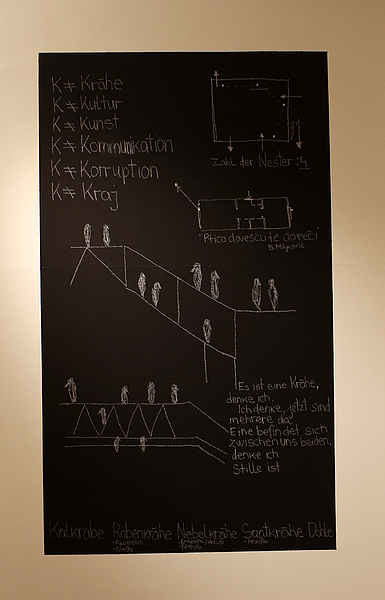 K ≠ Krähe
K ≠ Kultur
K ≠ Kunst
K ≠ Kommunikation
K ≠ Korruption
K ≠ Kraj
Zahl der Nester: 4
"Ptico dovešću te do reči"
B. Miljković
Es ist eine Krähe,
denke ich.
Ich denke, jetzt sind
mehrere da.
Eine befindet sich
zwischen uns beiden,
denke ich.
Stille ist
Kolkrabe Rabenkrähe Nebelkrähe Saatkrähe Dohle